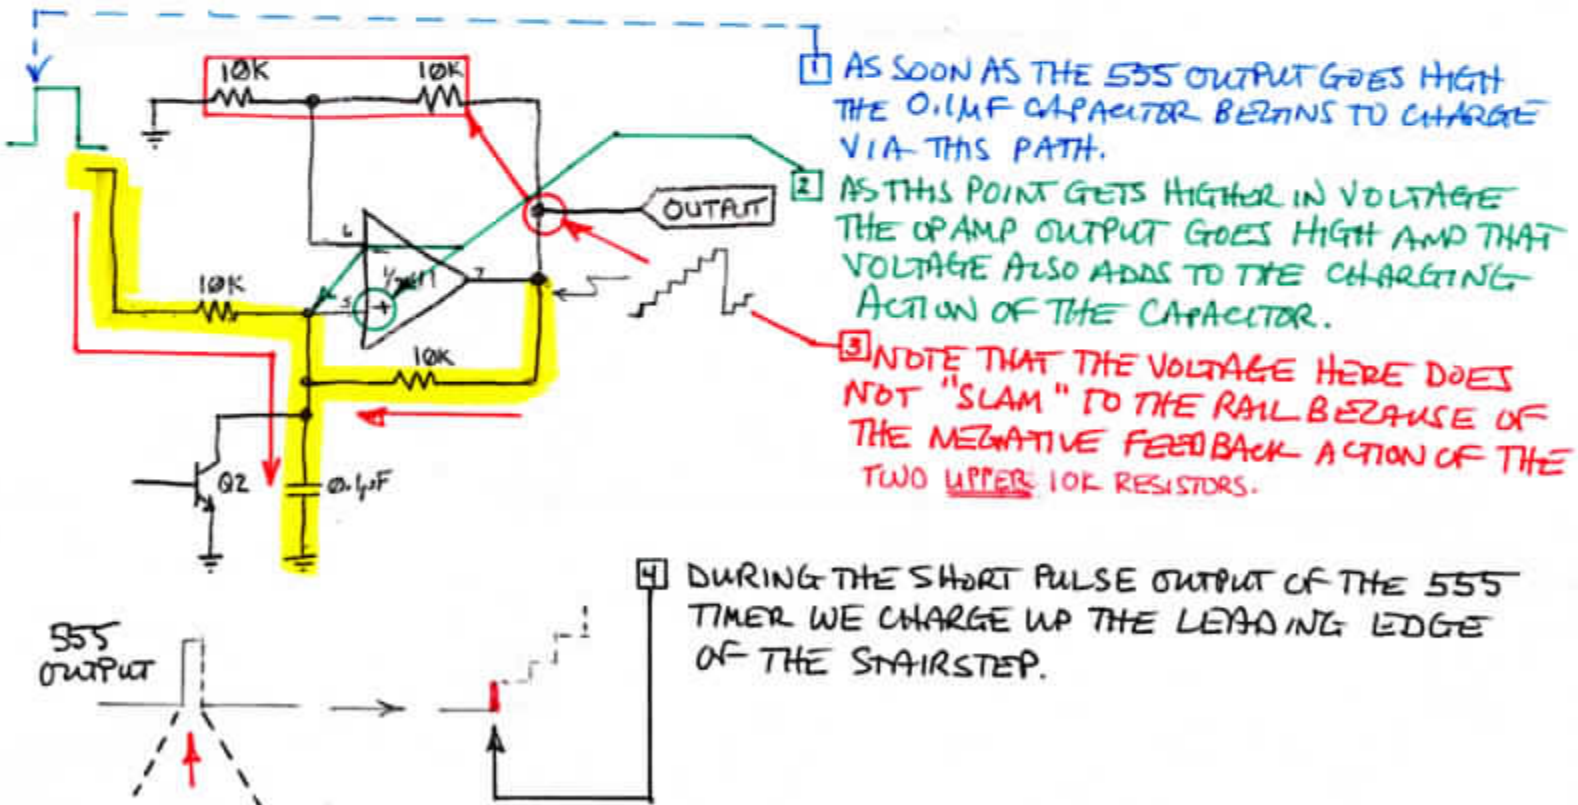 1 AS SOON AS THE 555 OUTPUT GOES HIGH
THE 0.1µF CAPACITOR BEGINS TO CHARGE
VIA THIS PATH.
2 AS THIS POINT GETS HIGHER IN VOLTAGE
THE OP AMP OUTPUT GOES HIGH AND THAT
VOLTAGE ALSO ADDS TO THE CHARGING
ACTION OF THE CAPACITOR.
3 NOTE THAT THE VOLTAGE HERE DOES
NOT "SLAM" TO THE RAIL BECAUSE OF
THE NEGATIVE FEEDBACK ACTION OF THE
TWO UPPER 10K RESISTORS.
10K
10K
OUTPUT
6
-
7
5
+
10K
10K
Q2
0.1µF
4 DURING THE SHORT PULSE OUTPUT OF THE 555
TIMER WE CHARGE UP THE LEADING EDGE
OF THE STAIRSTEP.
555
OUTPUT